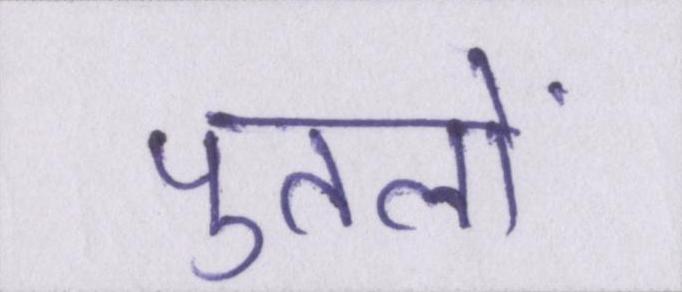 पुतलों